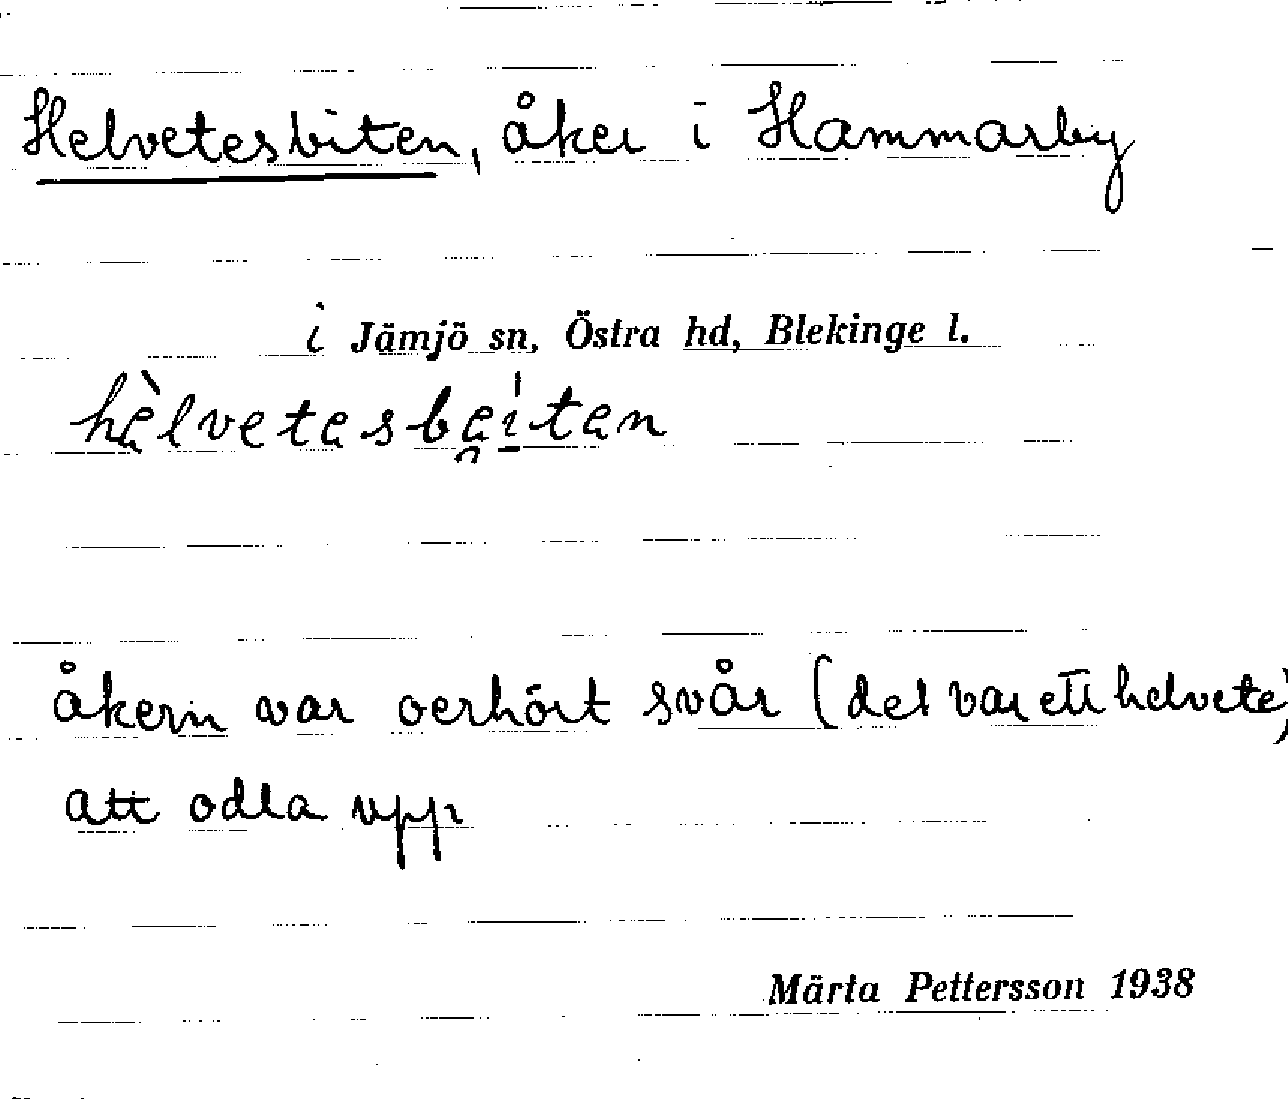 Helvetesbiten, åker i Hammarby
i Jämjö sn, Östra hd, Blekinge l.
hèlvetesbe̯i̱ten
åkern var oerhört svår (det var ett helvete)
att odla upp
Märta Pettersson 1938